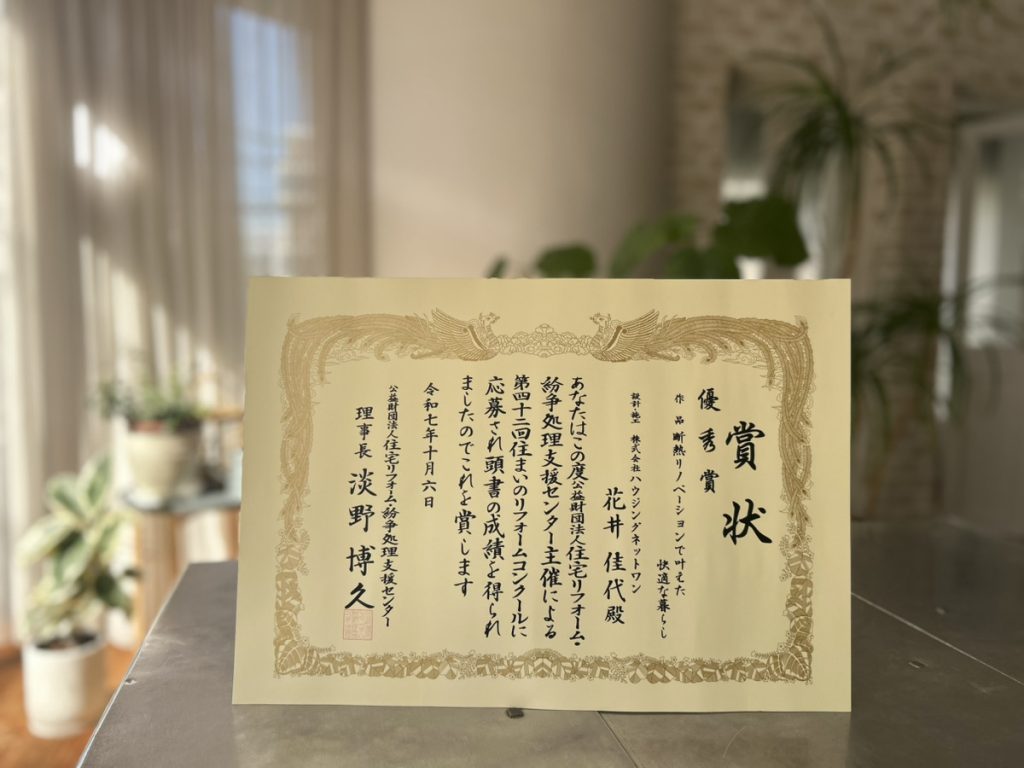 賞状
優秀賞
作品 断熱リノベーションで叶えた
快適な暮らし
設計・施工 株式会社ハウジングネットワン
花井佳代殿
あなたはこの度公益財団法人住宅リフォーム・
紛争処理支援センター主催による
第四十二回住まいのリフォームコンクールに
応募され頭書の成績を得られ
ましたのでこれを賞します
令和七年十月六日
公益財団法人住宅リフォーム・紛争処理支援センター
理事長 淡野博久